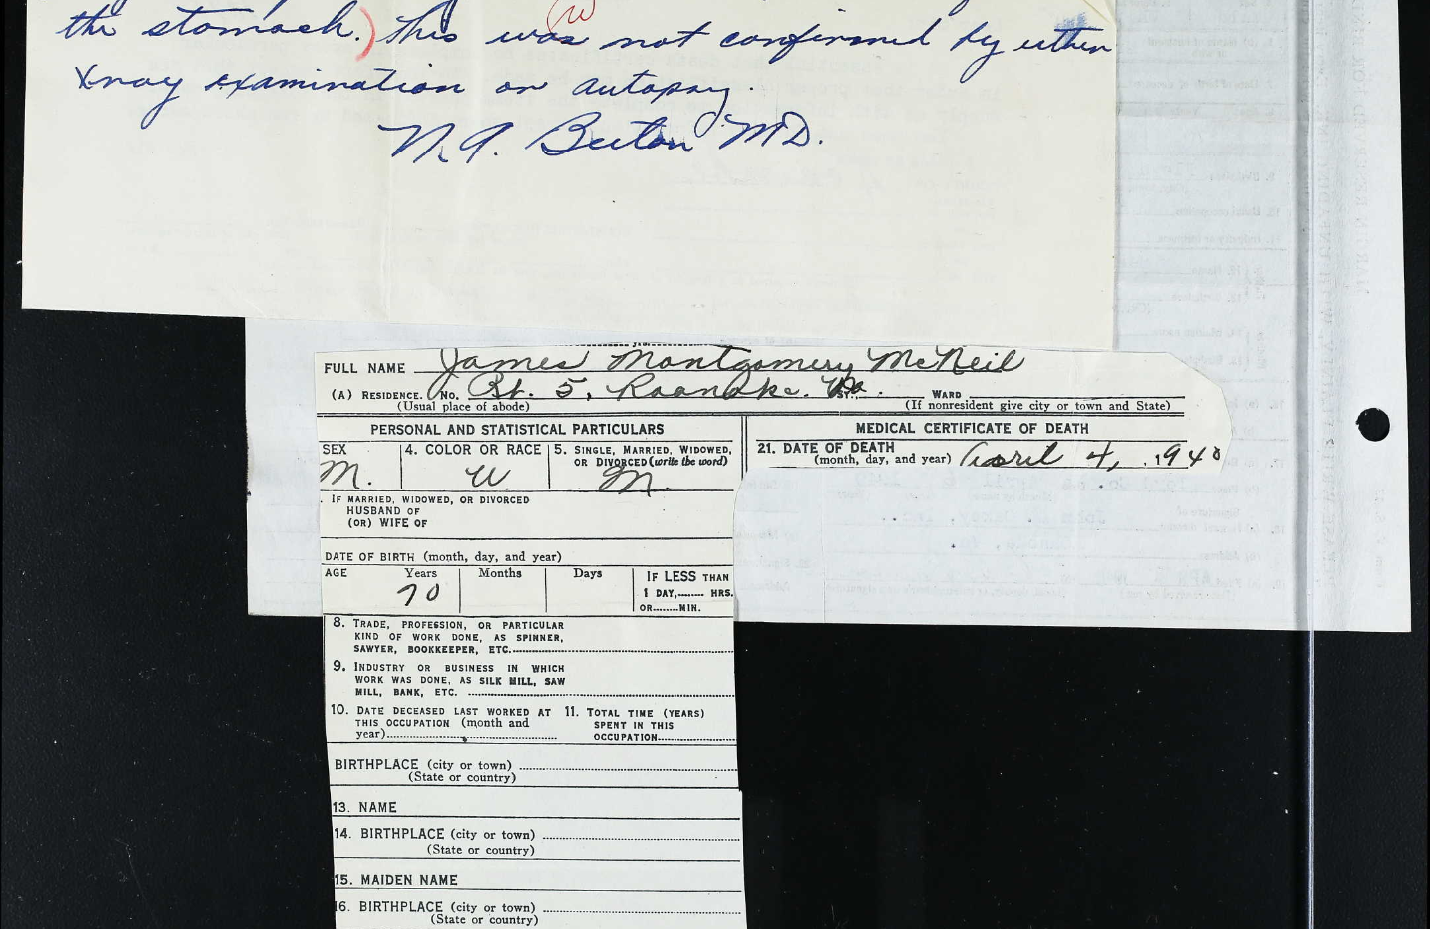 the stomach.) This was not confirmed by either
Xray examination or autopsy.
M.D.
FULL NAME James Montgomery McNeil
(A) RESIDENCE. No. Rt. 5, Roanoke. Va. ST., WARD
(Usual place of abode) (If nonresident give city or town and State)
PERSONAL AND STATISTICAL PARTICULARS
MEDICAL CERTIFICATE OF DEATH
SEX 4. COLOR OR RACE 5. SINGLE, MARRIED, WIDOWED, OR DIVORCED (write the word)
M. W M
21. DATE OF DEATH
(month, day, and year) April 4, 1940
IF MARRIED, WIDOWED, OR DIVORCED
HUSBAND OF
(OR) WIFE OF
DATE OF BIRTH (month, day, and year)
AGE Years Months Days IF LESS THAN
1 DAY, HRS.
OR MIN.
70
8. TRADE, PROFESSION, OR PARTICULAR
KIND OF WORK DONE, AS SPINNER,
SAWYER, BOOKKEEPER, ETC.
9. INDUSTRY OR BUSINESS IN WHICH
WORK WAS DONE, AS SILK MILL, SAW
MILL, BANK, ETC.
10. DATE DECEASED LAST WORKED AT
THIS OCCUPATION (month and
year)
11. TOTAL TIME (YEARS)
SPENT IN THIS
OCCUPATION
BIRTHPLACE (city or town)
(State or country)
13. NAME
14. BIRTHPLACE (city or town)
(State or country)
15. MAIDEN NAME
16. BIRTHPLACE (city or town)
(State or country)